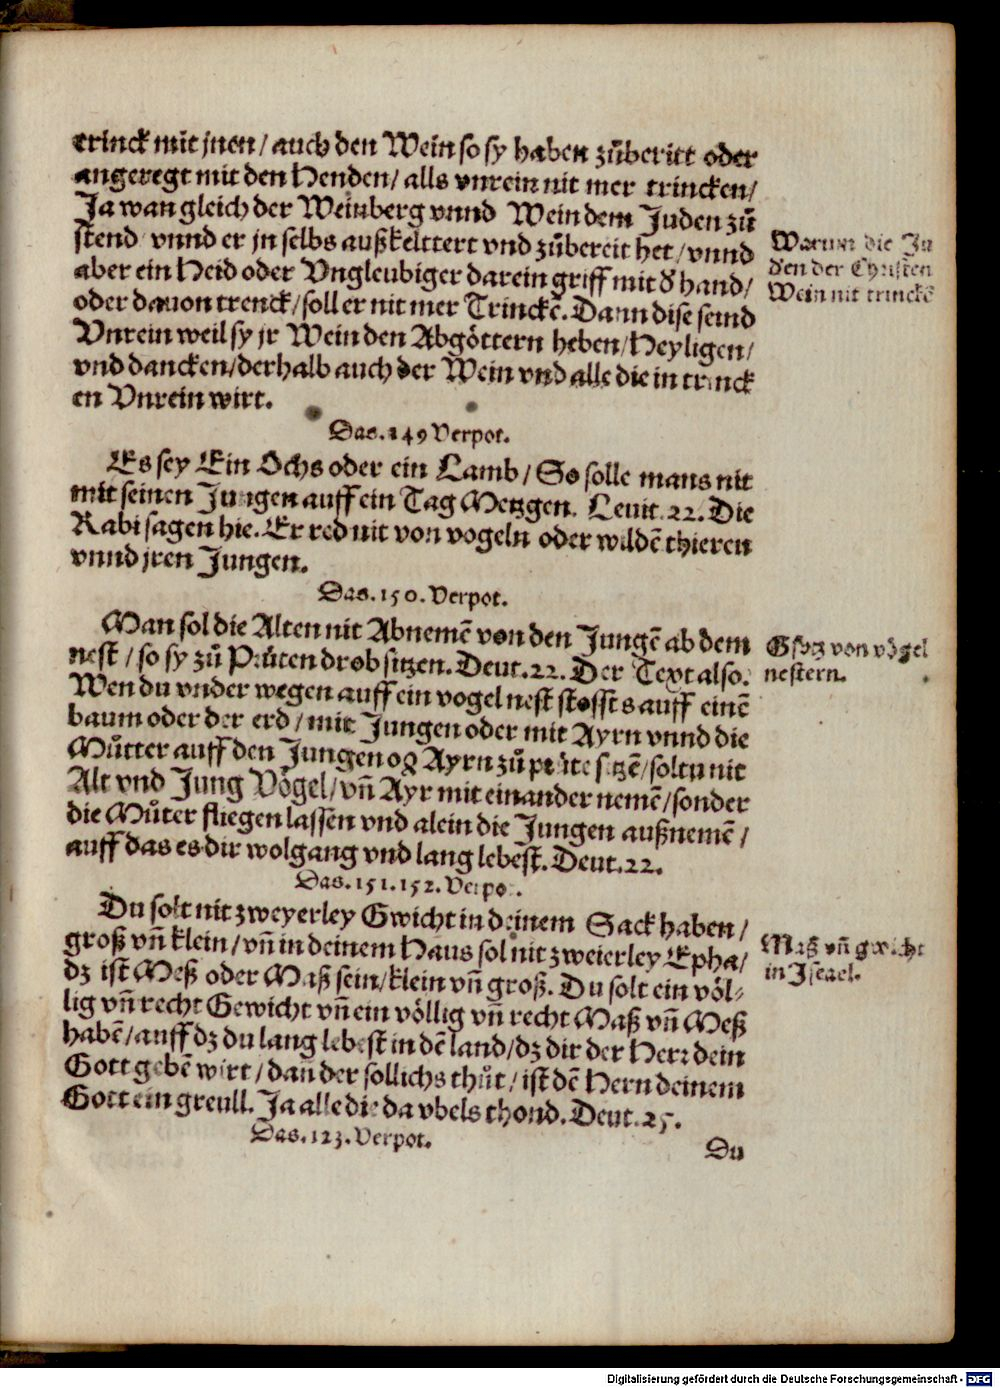 trinck mit jnen / auch den Wein so sy haben zůberitt oder
angeregt mit den Henden / alls vnrein nit mer trincken /
Ja wan gleich der Weinberg vnnd Wein dem Juden zů
stend vnnd er jn selbs außkelttert vnd zůbereit het / vnnd
aber ein Heid oder Vngleubiger darein griff mit d hand /
oder dauon trenck / soll er nit mer Trinckē. Dann dise seind
Vnrein weil sy jr Wein den Abgöttern heben / Heyligen /
vnd dancken / derhalb auch der Wein vnd alle die in trinck
en Vnrein wirt.
Warum die Ju
den der Christen
Wein nit trinckē
Das. 149 Verpot.
Es sey Ein Ochs oder ein Lamb / So solle mans nit
mit seinen Jungen auff ein Tag Metzgen. Leuit. 22. Die
Rabi sagen hie. Er red nit von vogeln oder wildē thieren
vnnd jren Jungen.
Das. 150. Verpot.
Man sol die Alten nit Abnemē von den Jungē ab dem
nest / so sy zů Prüten drob sitzen. Deut. 22. Der Text also.
Wen du vnder wegen auff ein vogel nest stossts auff einē
baum oder der erd / mit Jungen oder mit Ayrn vnnd die
Můtter auff den Jungen oꝛ Ayrn zů prüte sitzē / soltu nit
Alt vnd Jung Vögel / vn̄ Ayr mit einander nemē / sonder
die Můter fliegen lassen vnd alein die Jungen außnemē /
auff das es dir wolgang vnd lang lebest. Deut. 22.
Gsötz von vögel
nestern.
Das. 151. 152. Verpo .
Du solt nit zweyerley Gwicht in deinem Sack haben /
groß vn̄ klein / vn̄ in deinem Haus sol nit zweierley Epha /
dz ist Meß oder Maß sein / klein vn̄ groß. Du solt ein völ⸗
lig vn̄ recht Gewicht vn̄ ein völlig vn̄ recht Maß vn̄ Meß
habē / auff dz du lang lebest in dē land / dz dir der Herr dein
Gott gebē wirt / dan der sollichs thůt / ist dē Hern deinem
Gott ein greull. Ja alle die da vbels thond. Deut. 25.
Maß vn̄ gwicht
in Jsrael.
Das. 123. Verpot.
Du
Digitalisierung gefördert durch die Deutsche Forschungsgemeinschaft - DFG